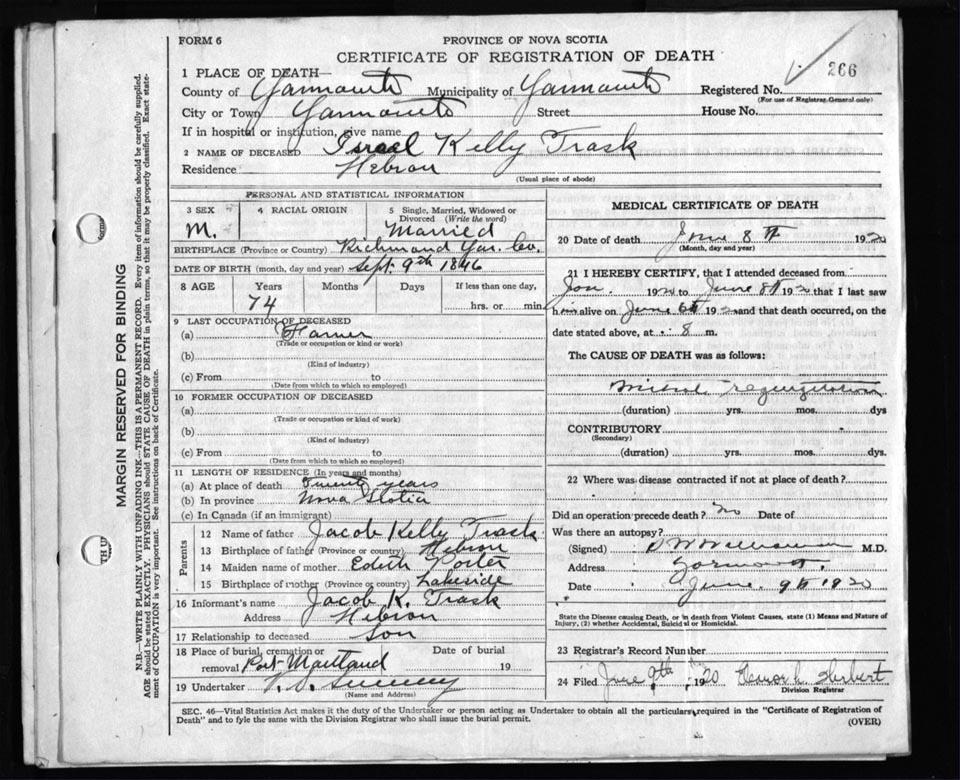 FORM 6
PROVINCE OF NOVA SCOTIA
CERTIFICATE OF REGISTRATION OF DEATH
266
1 PLACE OF DEATH—
County of Yarmouth Municipality of Yarmouth Registered No.
(For use of Registrar General only)
City or Town Yarmouth Street House No.
If in hospital or institution, give name
2 NAME OF DECEASED Israel Kelly Trask
Residence Hebron
(Usual place of abode)
PERSONAL AND STATISTICAL INFORMATION
3 SEX 4 RACIAL ORIGIN 5 Single, Married, Widowed or
Divorced (Write the word)
M. Married
BIRTHPLACE (Province or Country) Richmond Yar. Co.
DATE OF BIRTH (month, day and year) Sept. 9th 1846
8 AGE Years Months Days If less than one day,
74 hrs. or min.
9 LAST OCCUPATION OF DECEASED
(a) Farmer
(Trade or occupation or kind of work)
(b)
(Kind of industry)
(c) From to
(Date from which to which so employed)
10 FORMER OCCUPATION OF DECEASED
(a)
(Trade or occupation or kind of work)
(b)
(Kind of industry)
(c) From to
(Date from which to which so employed)
11 LENGTH OF RESIDENCE (In years and months)
(a) At place of death Twenty years
(b) In province Nova Scotia
(c) In Canada (if an immigrant)
Parents
12 Name of father Jacob Kelly Trask
13 Birthplace of father (Province or country) Hebron
14 Maiden name of mother Edith Porter
15 Birthplace of mother (Province or country) Lakeside
16 Informant's name Jacob K. Trask
Address Hebron
17 Relationship to deceased Son
18 Place of burial, cremation or Date of burial
removal Port Maitland 19
19 Undertaker V. S. Sweeny
(Name and Address)
MEDICAL CERTIFICATE OF DEATH
20 Date of death June 8th 1920
(Month, day and year)
21 I HEREBY CERTIFY, that I attended deceased from
Jan. 1920 to June 8th 1920 that I last saw
him alive on June 6th 1920 and that death occurred, on the
date stated above, at 8 m.
The CAUSE OF DEATH was as follows:
Mitral regurgitation
(duration) yrs. mos. dys
CONTRIBUTORY
(Secondary)
(duration) yrs. mos. dys.
22 Where was disease contracted if not at place of death?
Did an operation precede death? No Date of
Was there an autopsy?
(Signed) M.D.
Address Yarmouth.
Date June 9th 1920
State the Disease causing Death, or in death from Violent Causes, state (1) Means and Nature of
Injury, (2) whether Accidental, Suicidal or Homicidal.
23 Registrar's Record Number
24 Filed June 9th 1920 Herbert
Division Registrar
SEC. 46—Vital Statistics Act makes it the duty of the Undertaker or person acting as Undertaker to obtain all the particulars required in the "Certificate of Registration of
Death" and to fyle the same with the Division Registrar who shall issue the burial permit.
(OVER)
MARGIN RESERVED FOR BINDING
N.B.—WRITE PLAINLY WITH UNFADING INK—THIS IS A PERMANENT RECORD. Every item of information should be carefully supplied.
AGE should be stated EXACTLY. PHYSICIANS should STATE CAUSE OF DEATH in plain terms, so that it may be properly classified. Exact state-
ment of OCCUPATION is very important. See instructions on back of Certificate.